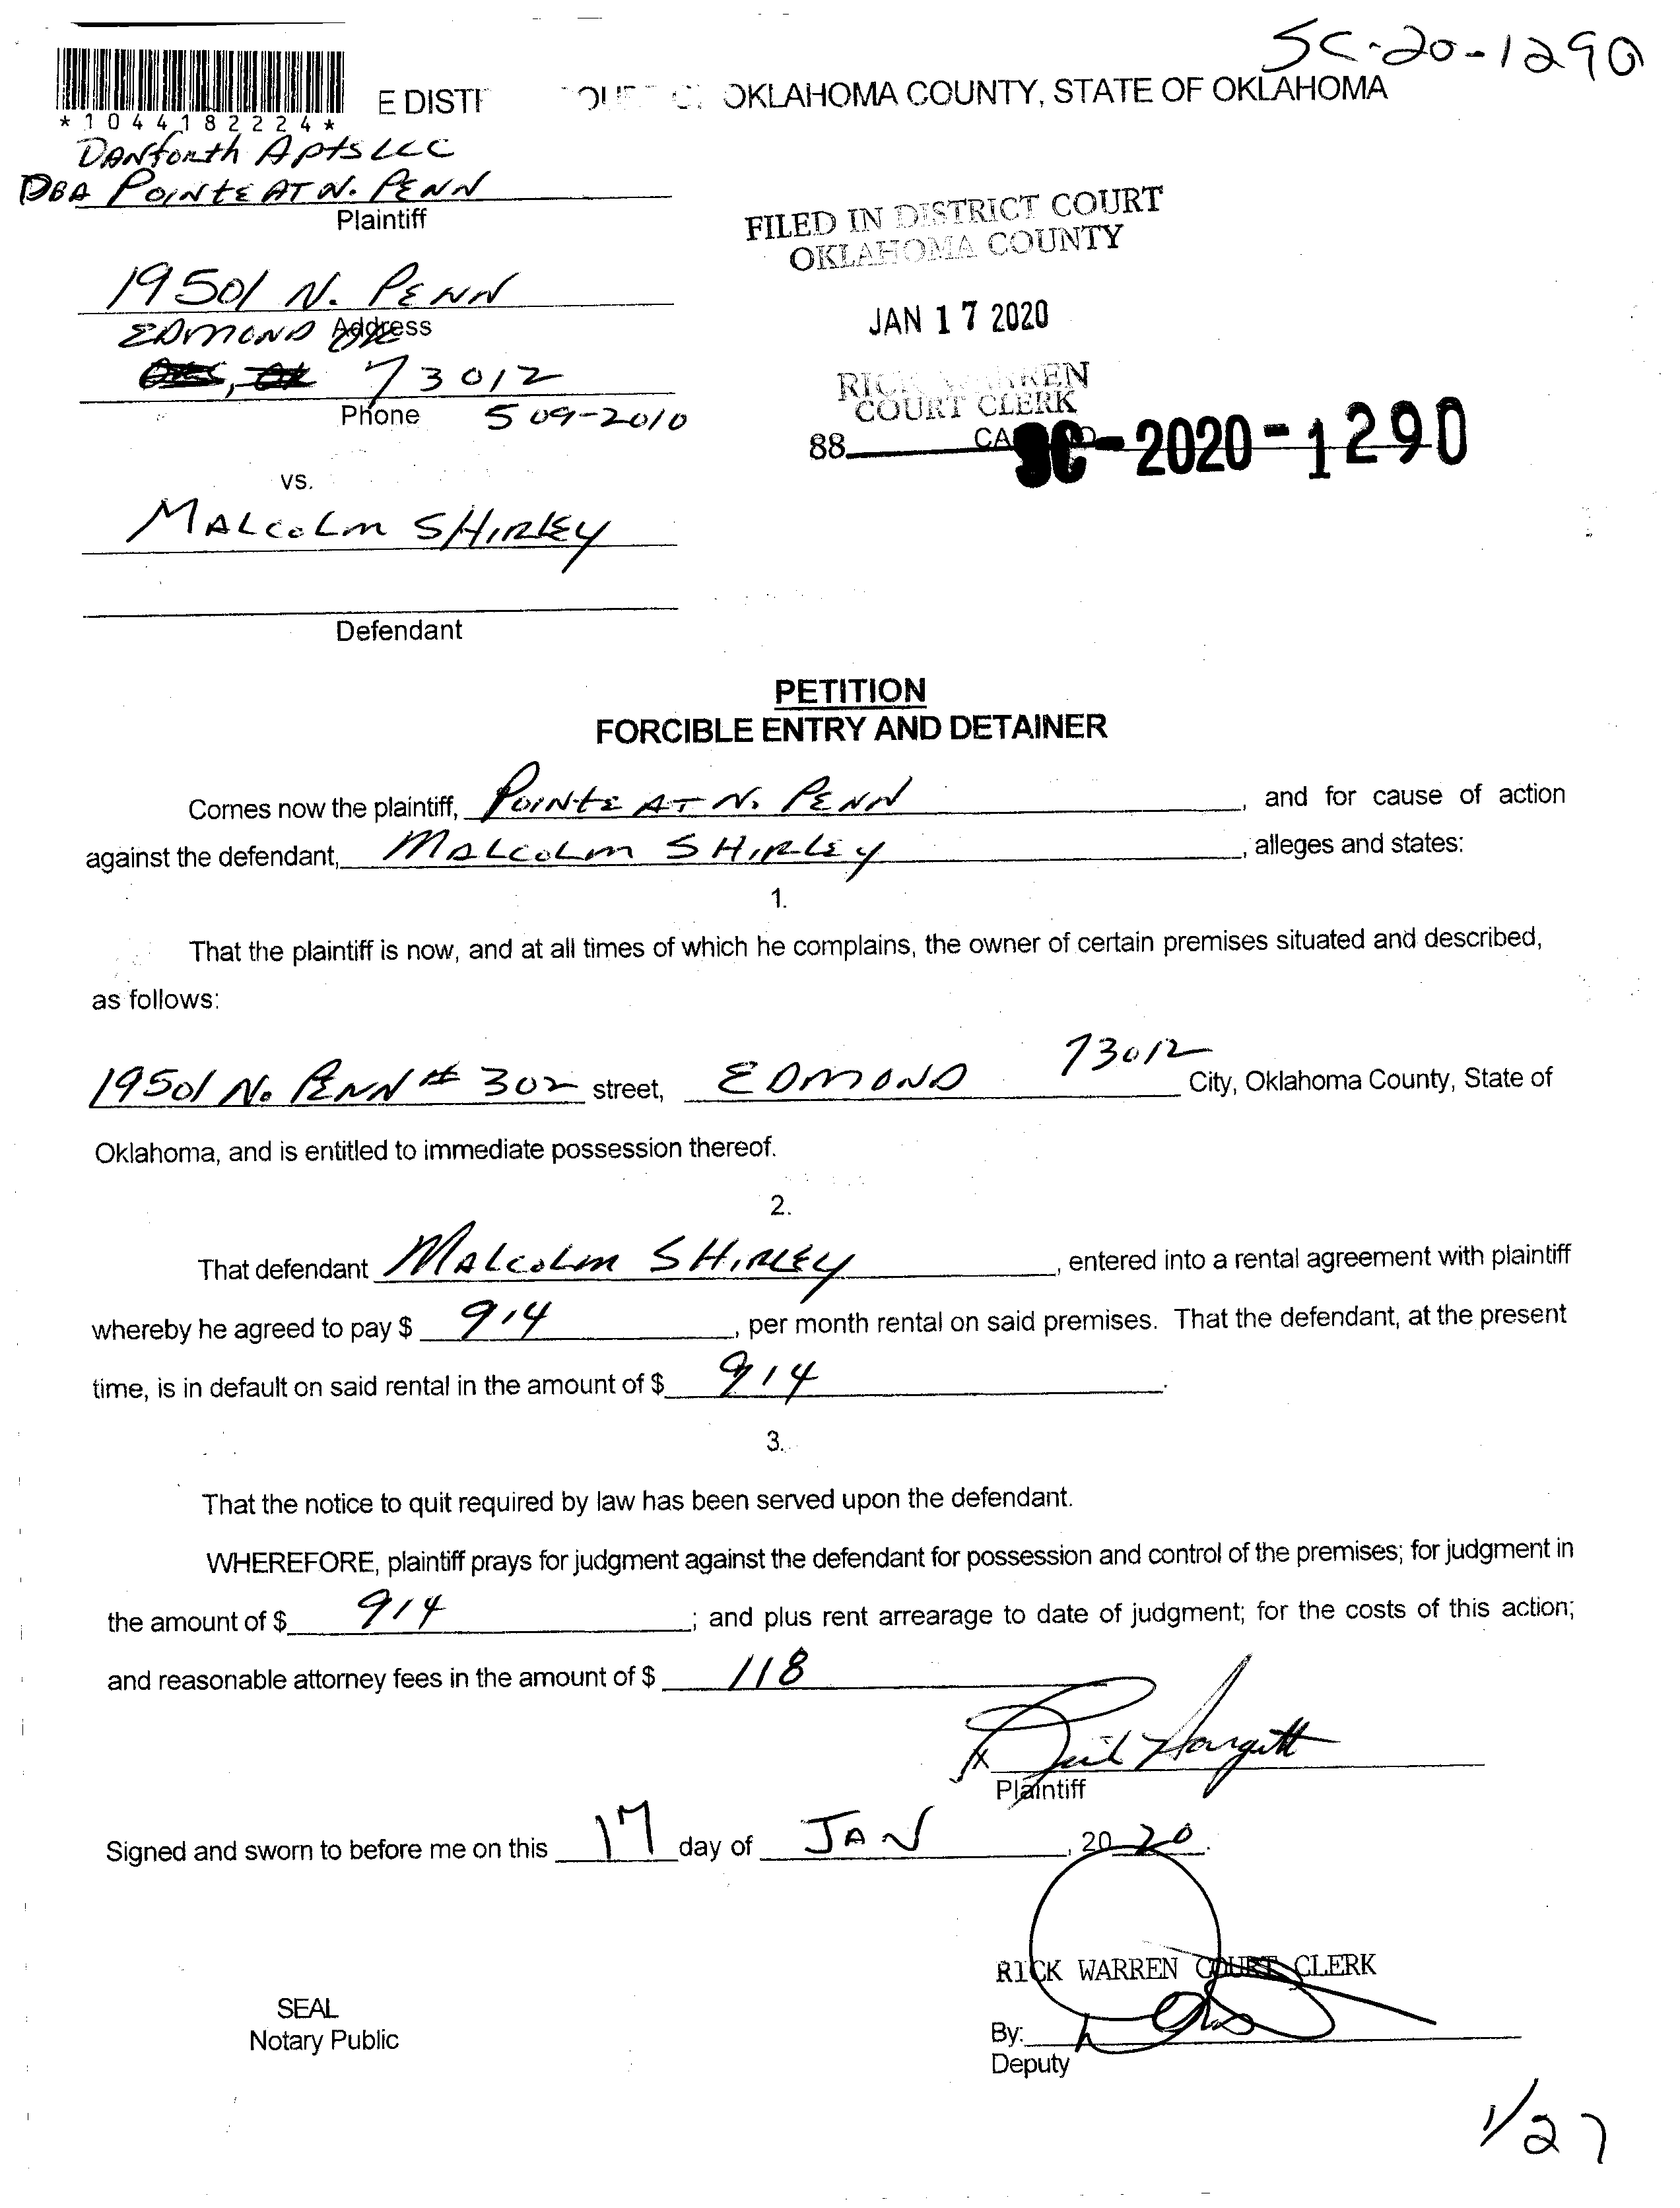 SC-20-1290
*1044182224*
E DISTR OKLAHOMA COUNTY, STATE OF OKLAHOMA
DANforth Apts LLC
DBA POINTE AT N. PENN
Plaintiff
FILED IN DISTRICT COURT
OKLAHOMA COUNTY
19501 N. PENN
Address
JAN 17 2020
EDMOND OK
73012
RICK WARREN
COURT CLERK
Phone 509-2010
88
SC-2020-1290
vs.
MALCOLM SHIRLEY
Defendant
PETITION
FORCIBLE ENTRY AND DETAINER
Comes now the plaintiff, POINTE AT N. PENN, and for cause of action
against the defendant, MALCOLM SHIRLEY, alleges and states:
1.
That the plaintiff is now, and at all times of which he complains, the owner of certain premises situated and described,
as follows:
19501 N. PENN # 302 street, EDMOND 73012 City, Oklahoma County, State of
Oklahoma, and is entitled to immediate possession thereof.
2.
That defendant MALCOLM SHIRLEY, entered into a rental agreement with plaintiff
whereby he agreed to pay $ 914, per month rental on said premises. That the defendant, at the present
time, is in default on said rental in the amount of $ 914.
3.
That the notice to quit required by law has been served upon the defendant.
WHEREFORE, plaintiff prays for judgment against the defendant for possession and control of the premises; for judgment in
the amount of $ 914; and plus rent arrearage to date of judgment; for the costs of this action;
and reasonable attorney fees in the amount of $ 118
x
Plaintiff
Signed and sworn to before me on this 17 day of JAN, 2020.
RICK WARREN COURT CLERK
SEAL
Notary Public
By:
Deputy
1/27